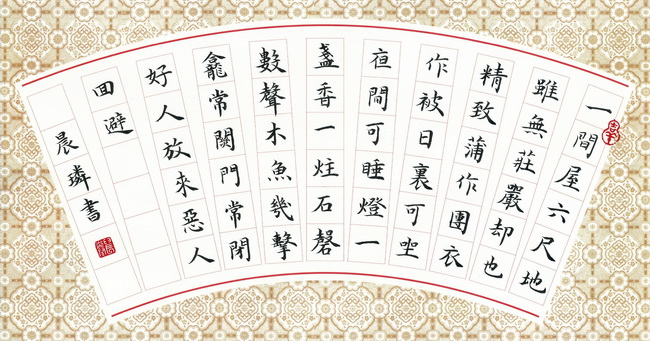 一間屋六尺地
雖無莊嚴却也
精致蒲作團衣
作被日裏可坐
夜間可睡燈一
盞香一炷石磬
數聲木魚幾擊
龕常關門常閉
好人放來惡人
回避
晨璘書